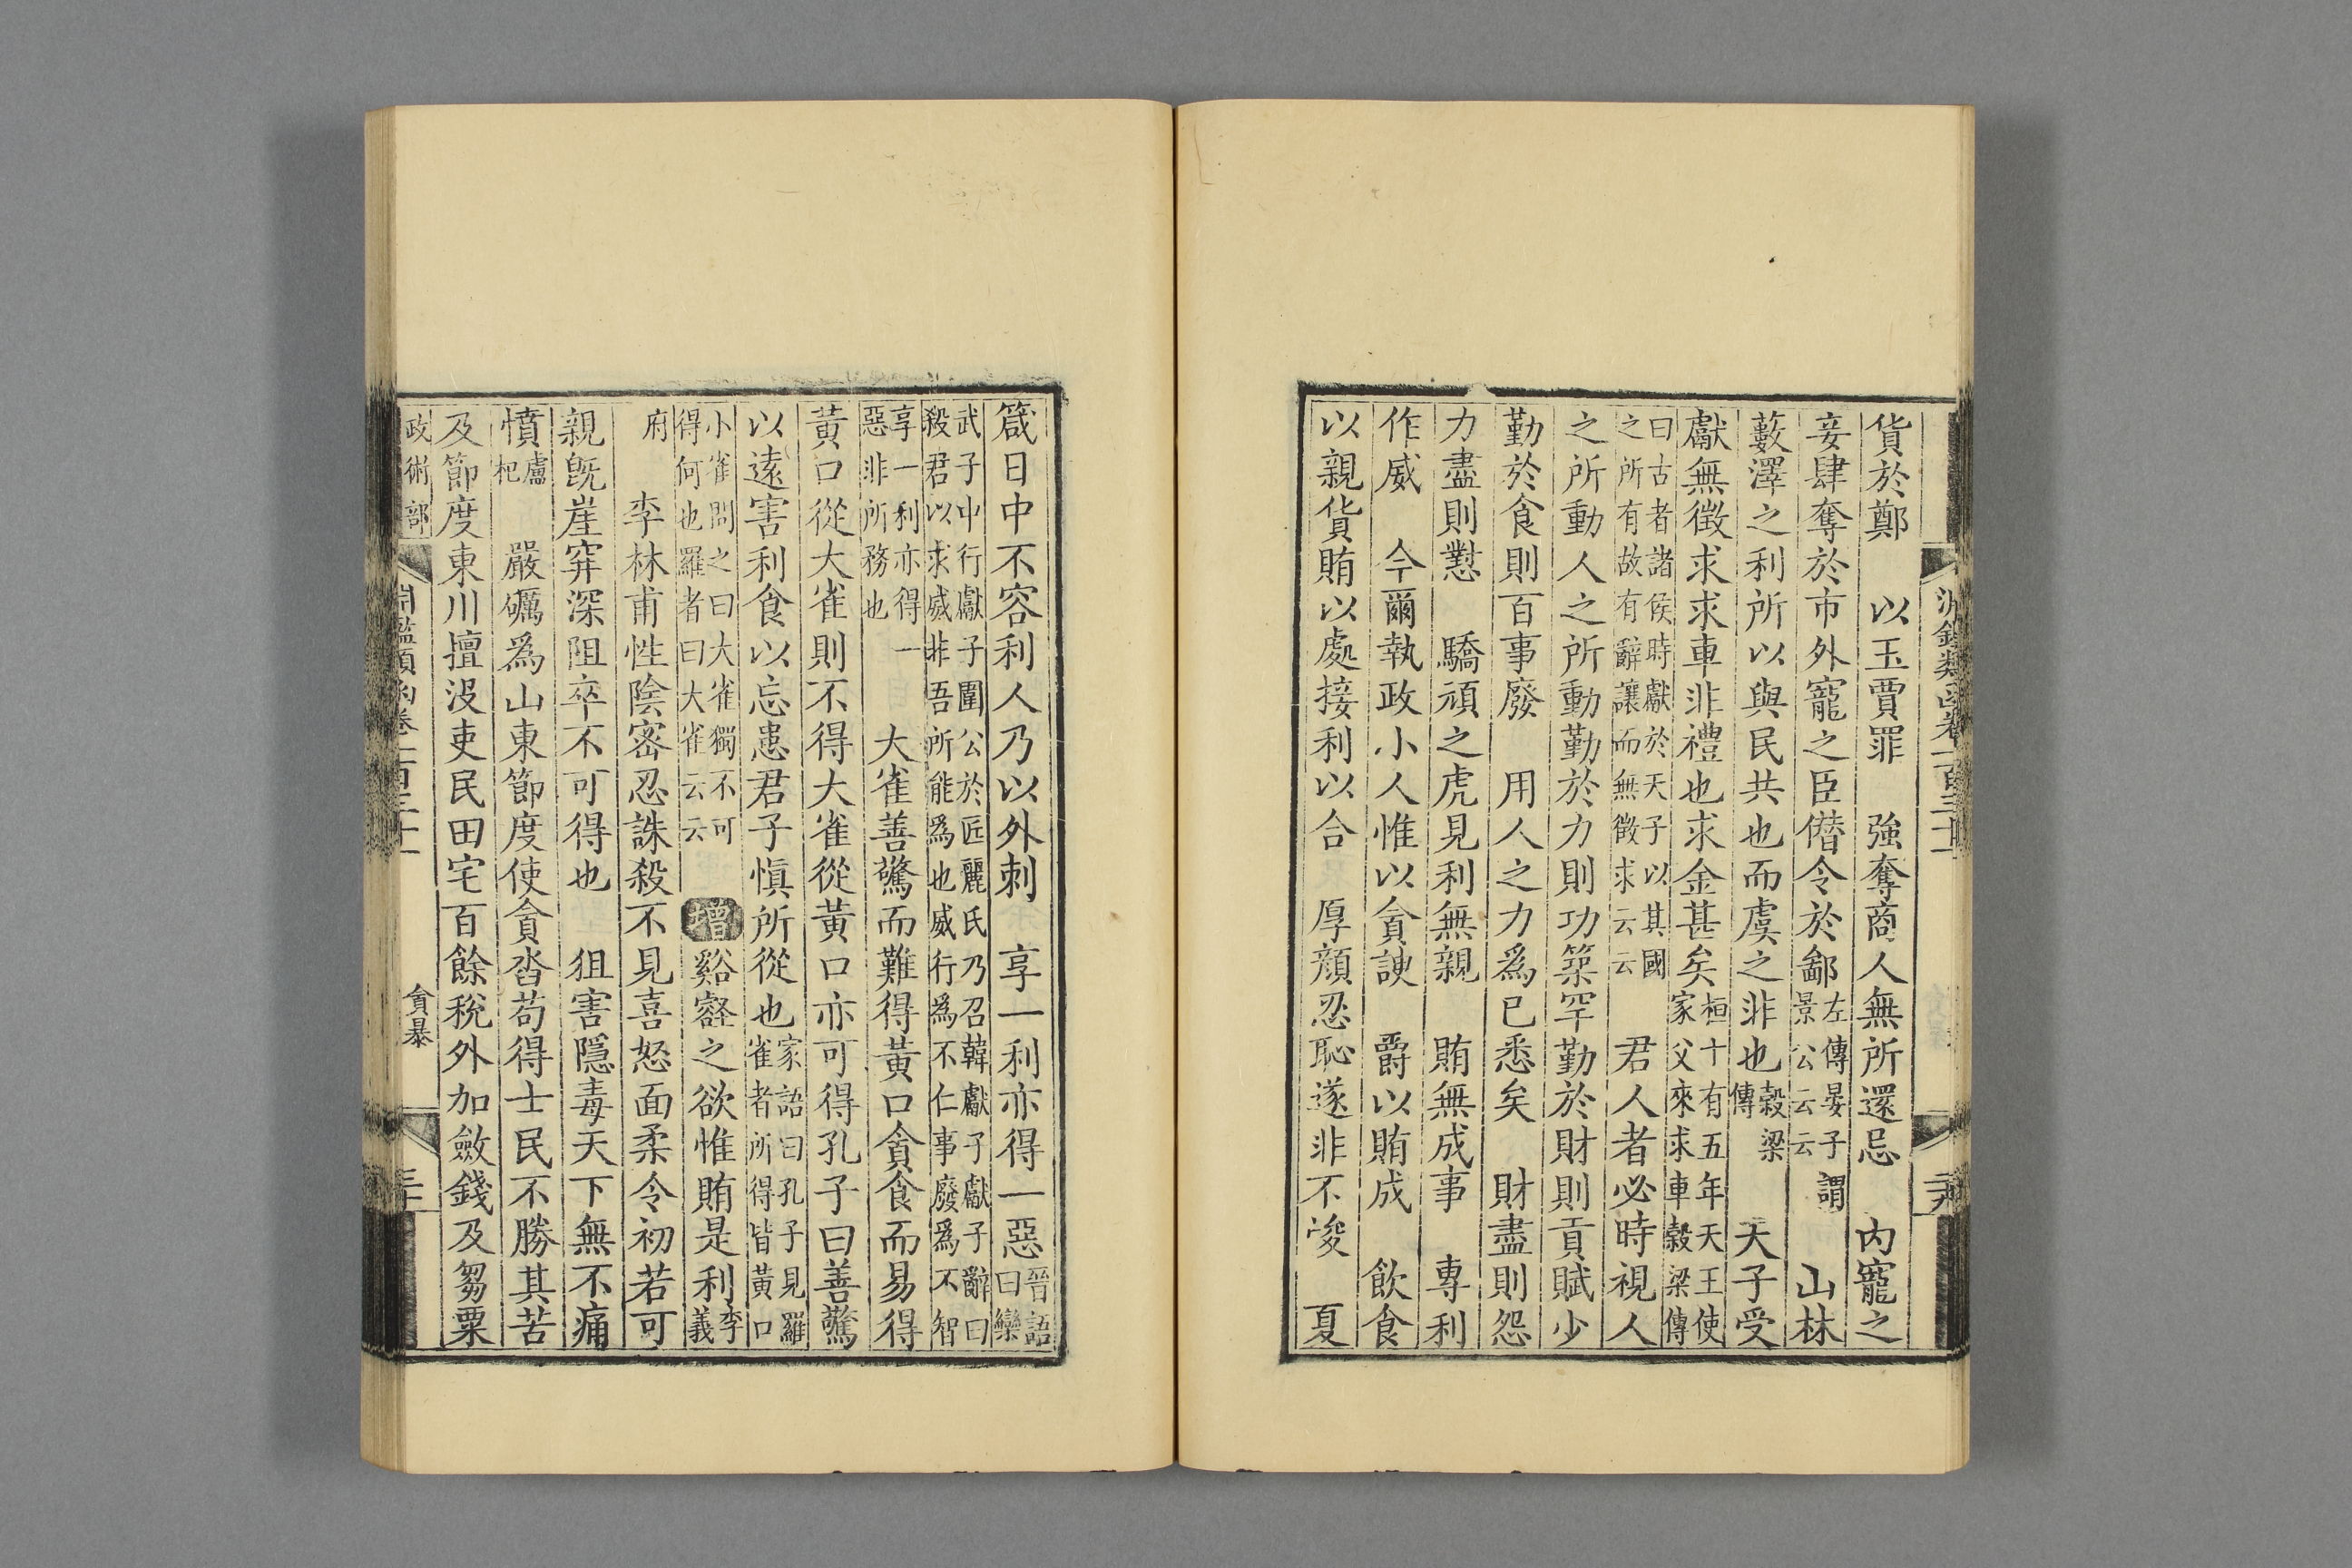 貨於鄭　以玉賈罪　強奪商人無所還忌　內寵之
妾肆奪於市外寵之臣僭令於鄙左傳晏子謂景公云云　山林
藪澤之利所以與民共也而虞之非也穀梁傳　天子受
獻無徵求求車非禮也求金甚矣桓十有五年天王使家父來求車穀梁傳
曰古者諸侯時獻於天子以其國之所有故有辭讓而無徵求云云　君人者必時視人
之所動人之所動勤於力則功築罕勤於財則貢賦少
勤於食則百事廢　用人之力為已悉矣　財盡則怨
力盡則懟　驕頑之虎見利無親　賄無成事　專利
作威　今爾執政小人惟以貪諛　爵以賄成　飲食
以親貨賄以處接利以合　厚顏忍恥遂非不悛　夏
箴日中不容利人乃以外刺　享一利亦得一惡晉語曰欒
武子中行獻子圍公於匠麗氏乃召韓獻子獻子辭曰殺君以求威非吾所能爲也威行爲不仁事廢爲不智
享一利亦得一惡非所務也　大雀善驚而難得黃口貪食而易得
黃口從大雀則不得大雀從黃口亦可得孔子曰善驚
以遠害利食以忘患君子慎所從也家語曰孔子見羅雀者所得皆黃口
小雀問之曰大雀獨不可得何也羅者曰大雀云云　增谿壑之欲惟賄是利李義
府　李林甫性陰密忍誅殺不見喜怒面柔令初若可
親旣崖穽深阻卒不可得也　狙害隱毒天下無不痛
憤盧杞　嚴礪爲山東節度使貪沓苟得士民不勝其苦
及節度東川擅没吏民田宅百餘稅外加斂錢及芻粟
政術部　淵鑑類函卷一百三十一　貪暴　三十